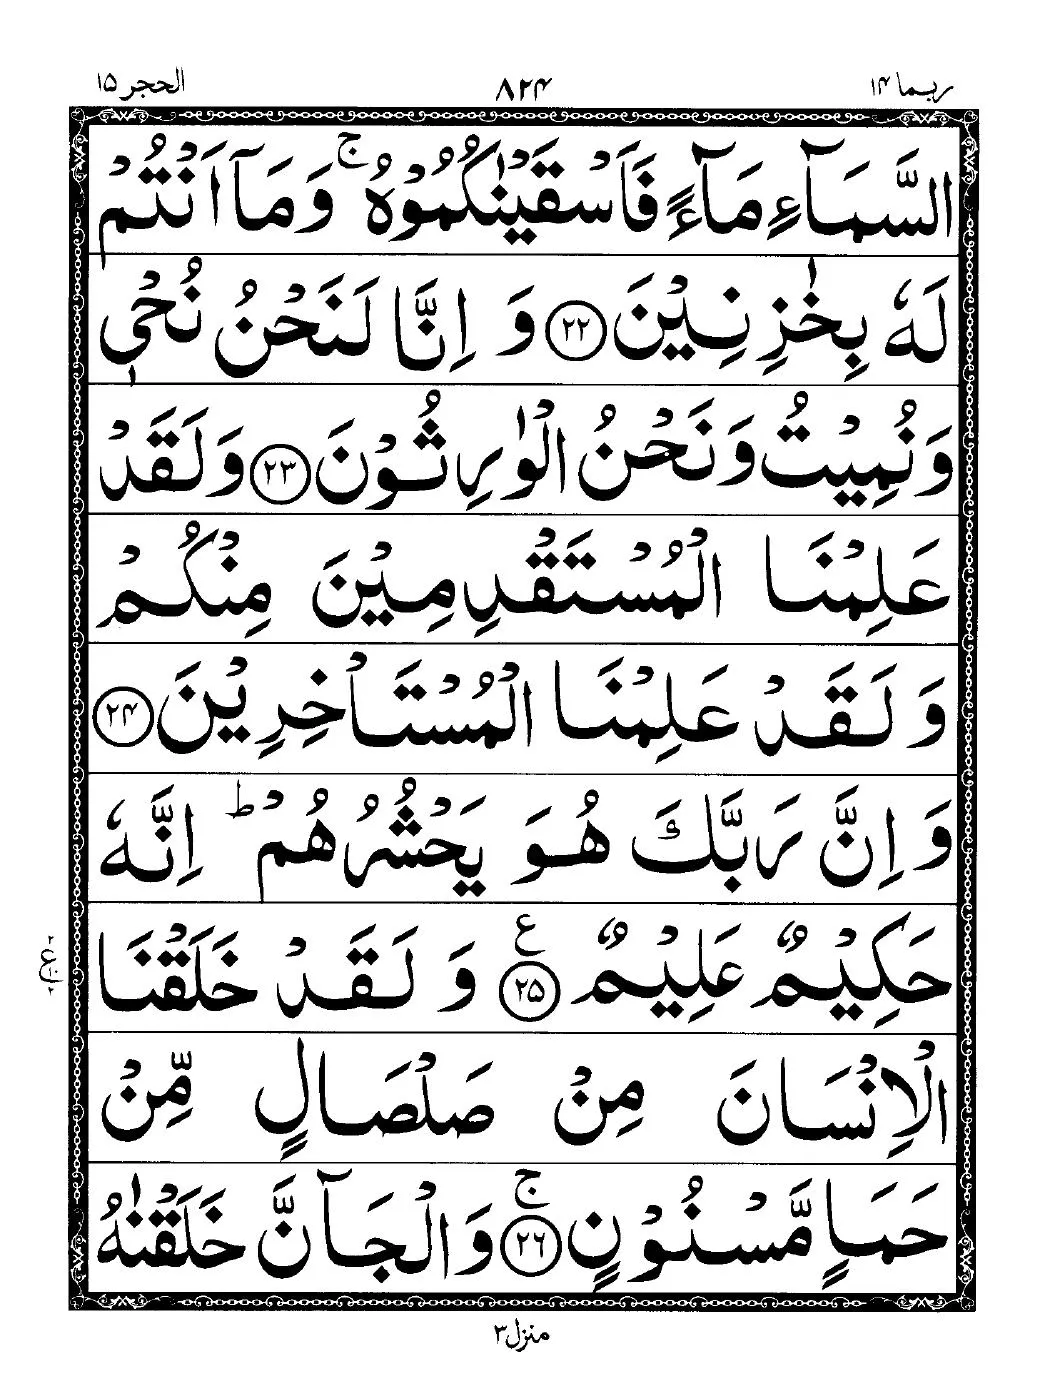 ربما ۱۴ ۸۲۴ الحجر ۱۵
السَّمَآءِ مَآءً فَاَسْقَيْنٰكُمُوْهُ ۚ وَمَاۤ اَنْتُمْ
لَهٗ بِخٰزِنِيْنَ ﴿۲۲﴾ وَ اِنَّا لَنَحْنُ نُحْیٖ
وَنُمِيْتُ وَنَحْنُ الْوٰرِثُوْنَ ﴿۲۳﴾ وَلَقَدْ
عَلِمْنَا الْمُسْتَقْدِمِيْنَ مِنْكُمْ
وَ لَقَدْ عَلِمْنَا الْمُسْتَاْخِرِيْنَ ﴿۲۴﴾
وَ اِنَّ رَبَّكَ هُوَ يَحْشُرُهُمْ ؕ اِنَّهٗ
حَكِيْمٌ عَلِيْمٌ ﴿۲۵﴾ ع وَ لَقَدْ خَلَقْنَا
الْاِنْسَانَ مِنْ صَلْصَالٍ مِّنْ
حَمَاٍ مَّسْنُوْنٍ ﴿۲۶﴾ ۚ وَالْجَآنَّ خَلَقْنٰهُ
منزل ۳